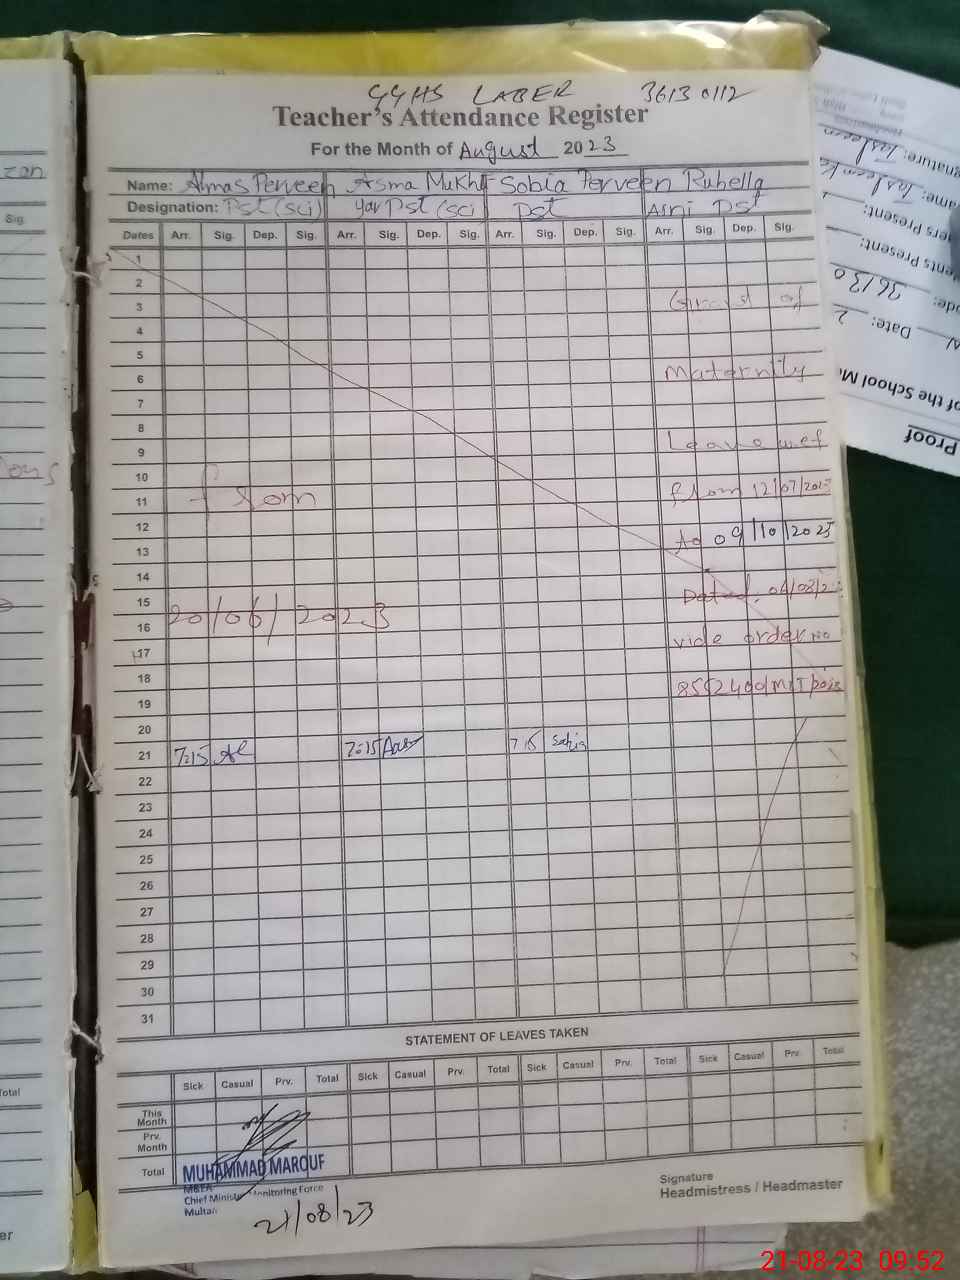 GGHS LABER 36130112
Teacher's Attendance Register
For the Month of August 2023
Name: Almas Perveen Asma Mukht Sobia Perveen Rubella
Designation: Pst (sci) yar Pst (sci Pst Asni Pst
Dates Arr. Sig. Dep. Sig. Arr. Sig. Dep. Sig. Arr. Sig. Dep. Sig. Arr. Sig. Dep. Sig.
1
2
3 of
4
5
6 Maternity
7
8
9 wef
10
11 from 12/07/2023
12
13 to 09/10/2023
14
15 Dated.
16 20/06/2023
17 vide order No
18
19
20
21 7:15 7:15 7:15 Sobia
22
23
24
25
26
27
28
29
30
31
STATEMENT OF LEAVES TAKEN
Sick Casual Prv. Total Sick Casual Prv. Total Sick Casual Prv. Total Sick Casual Prv. Total
This Month
Prv. Month
Total
MUHAMMAD MAROUF
MEA
Chief Minister Monitoring Force
Multan
21/08/23
Signature
Headmistress / Headmaster
Sig.
Total
Proof
of the School M
Date: 2
ode: 36130
ents Present:
ers Present:
ame: Tasleem K
gnature: Tasleem
21-08-23 09:52